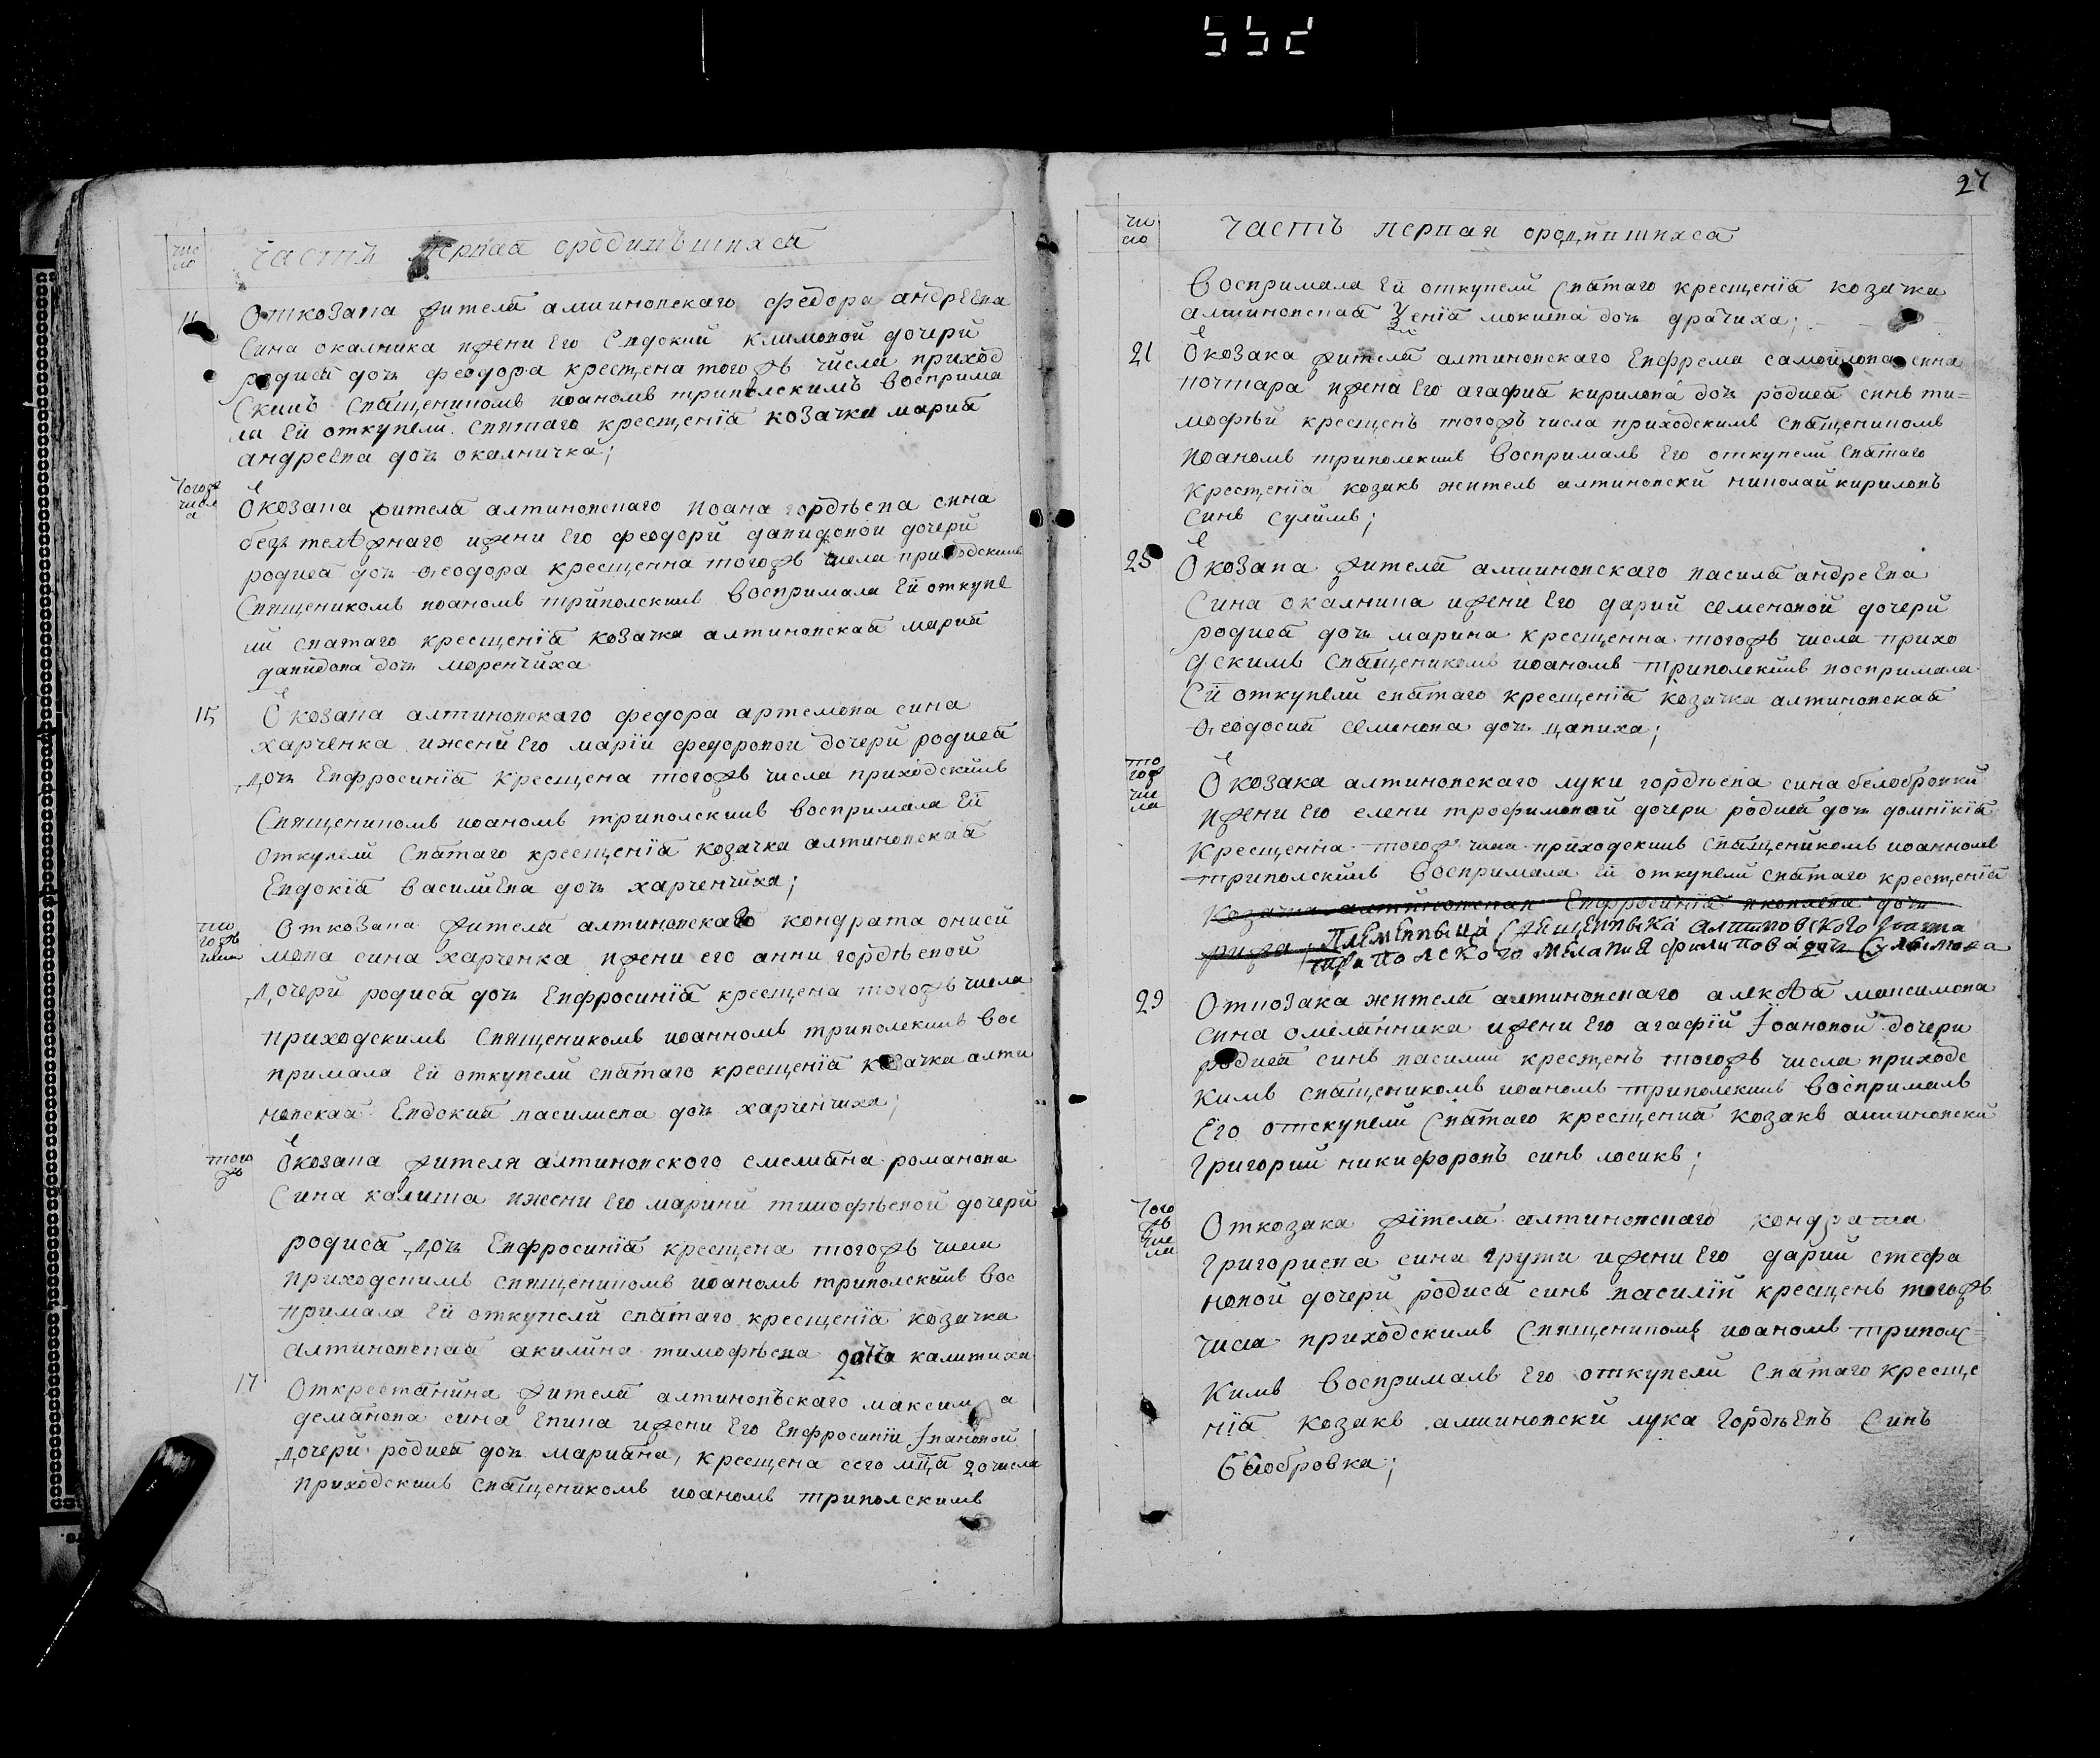 552
27
чис
ло
часть перпая ородипъшихся
11
Откозапа жителя алтинопскаго федора андреепа
сина окалника ижени Его Епдокии климопой дочери
родися дочь феодора крестена тогожъ числа приход
скимъ спященипомъ иоаномъ триполскимъ восприма
ла Ей откупели спятаго крестенїя козачка мария
андреепа дочь окалничка;
Тогож
числ
а
Ѿкозапа жителя алтинопскаго иоана гордѣепа сина
ижени Его феодори дапидопои дочери
родися дочь ѳеодора кресщенна тогожъ числа приходскимъ
спящеником иоаномъ триполскимъ воспримала Ей откупе
ли спатаго кресщенїя козачка алтинопская мария
дапидопа дочь моренчиха
15
Ѿкозапа алтинопскаго федора артемопа сина
харченка ижени Его марїи федоропои дочери родися
дочь Епфросинїя кресщена тогожъ числа приходскимъ
спященипомъ иоаномъ триполскимъ воспримала Ей
откупели спятаго кресщенїя козачка алтинопская
Епдокїя василиепа дочь харченчиха;
то
гожъ
числа
Откозапа жителя алтинопскаго кондрата ониси
мопа сина харченка ижени его анни гордѣепой
дочери родися дочь Епфросинїя крестена тогожъ числа
приходскимъ спящеником иоанномъ триполскимъ вос
примала Ей откупели спятаго кресщенїя козачка алти
нопская Епдокия пасилиепа дочь харченчиха;
того
жъ
Ѿкозапа жителя алтинопского емелияна романопа
сина калиша ижени Его марини тимофѣепой дочери
родися дочь Епфросинїя кресщена тогожъ числа
приходскимъ спященипомъ иоаномъ триполскимъ вос
примала Ей откупели спятаго кресщенїя козачка
алтинопская акилина тимофѣепа дочь калитиха
17
Открестянина жителя алтинопъскаго максима
демянопа сина Епина ижени Его Епфросинїи Iпанопой
дочери родися дочь марияна, кресщена сего мца 20 числа
приходскимъ спящеником иоаномъ триполскимъ
чи
сло
часть перпая ородипшихся
воспримала Ей откупели спятаго кресщенїя козачка
алтинопская зенїя мокиепа дочь драчиха;
21
Ѿкозака жителя алтинопскаго Епфрема самойлопа сина
почтара ижена Его агафия кирилопа дочь родися синъ ти=
мофѣй крещенъ тогожъ числа приходскимъ спященипомъ
иоаномъ триполскимъ воспрималъ Его откупели спятаго
крестенїя козакъ житель алтинопски николай кирилопъ
синъ сулимъ;
25
Ѿкозапа жителя алтинопскаго пасиля андреепа
сина окалнипа ижени Его дарии семенопой дочери
родися дочь марина кресщенна тогожъ числа прихо
дскимъ спящеником иоаномъ триполскимъ поспримала
Ей откупели спятаго кресщенїя козачка алтинопская
ѳеодосия семенопа дочь цапиха;
то
гож
чис
ла
Ѿкозака алтинопскаго луки гордѣепа сина белобропки
ижени Его елени трофимопой дочери родися дочь домнїкїя
кресщенна тогож числа приходскимъ спящеником иоанномъ
триполскимъ воспримала Ей откупели спятаго крестенїя
козачка алтинопская Епфросинїя дочь
Племенныца Свещенныка Алтыновского Iоанна
трипоЛского Мелания филипова дочъ Сулымова
29
Откозака жителя алтинопскаго алексѣя максимопа
сина омелянника ижени Его агафїи Iоанопой дочери
родися синъ пасилии крестенъ тогожъ числа приходс
кимъ спящеником иоаномъ триполскимъ воспрималъ
Его отскупели спятаго кресщения козакъ алтинопски
Григорий никифоропъ синъ лосикъ;
Того
жъ
чис
ла
Откозака жїтеля алтинопскаго кондрата
григориепа сина грути ижени Его дарии стефа
нопой дочери родися синъ пасилїй кресщенъ тогожъ
числа приходскимъ спященипомъ иоаномъ трипол=
кимъ воспрималъ Его откупели спятаго кресще
нїя козакъ алтинопски лука Гордѣепъ синъ
белобровка;